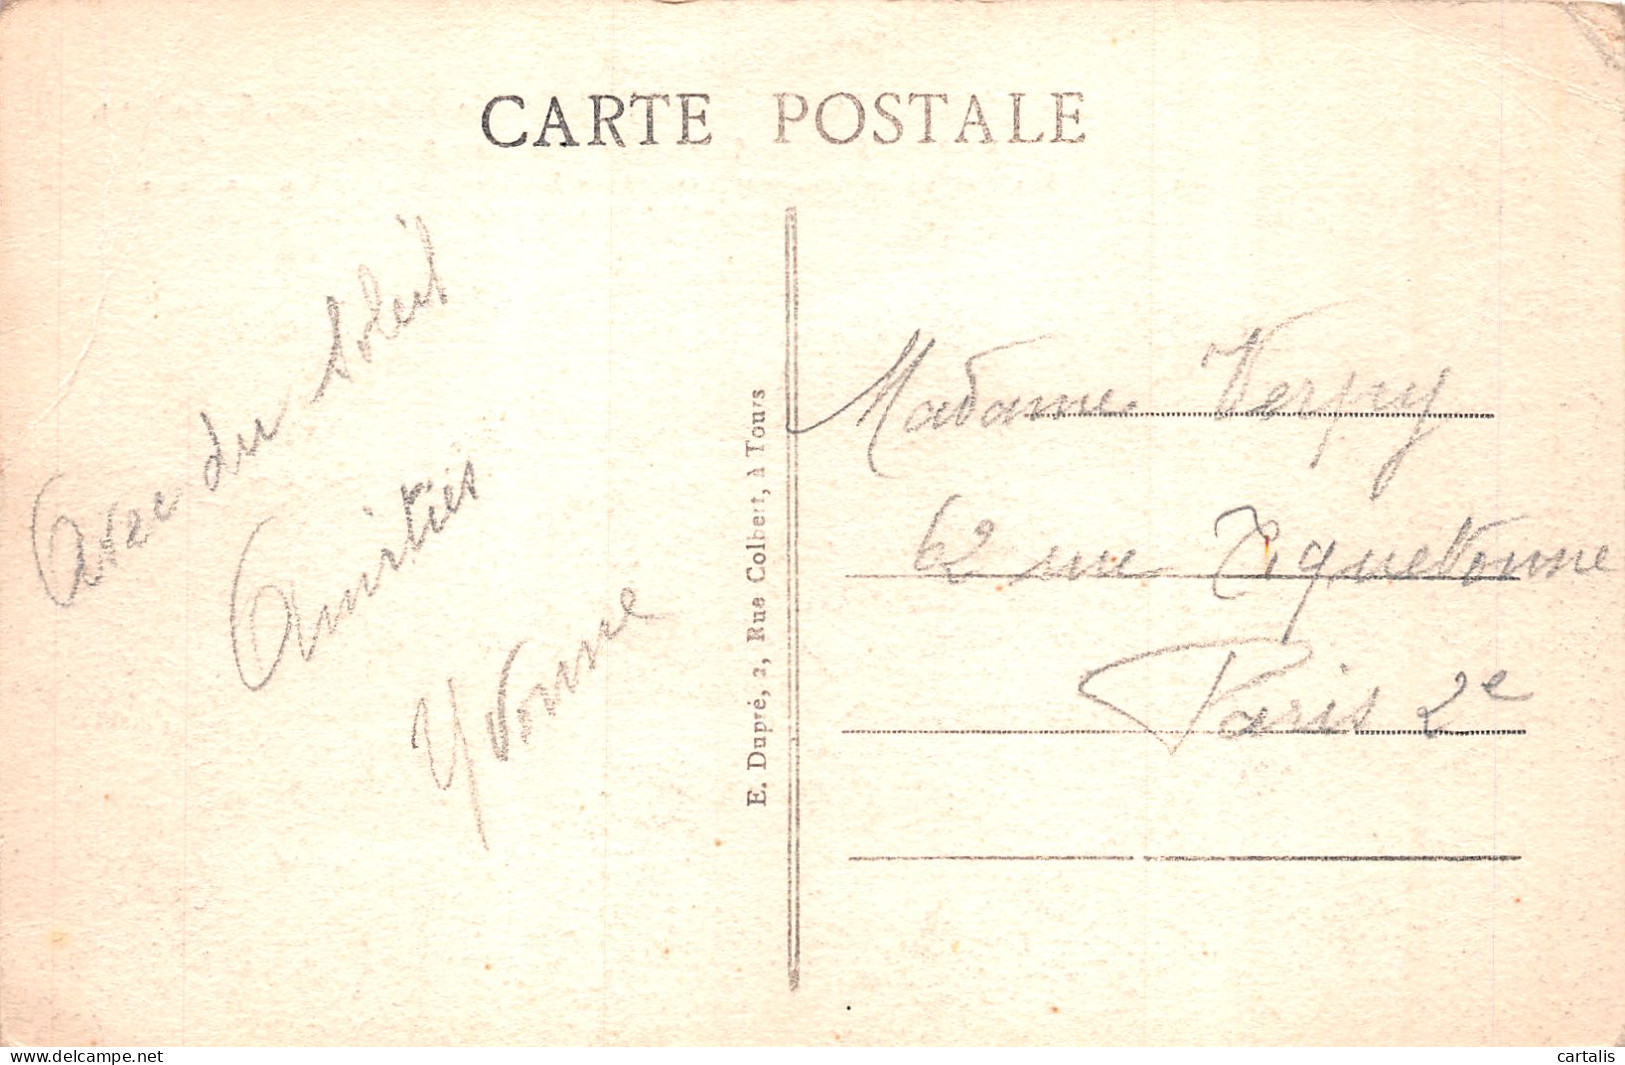 CARTE POSTALE
Avec du soleil
Amitiés
Yvonne
E. Dupré, 2, Rue Colbert, à Tours
Madame
62 rue Tiquetonne
Paris 2e
delcampe.net
cartalis